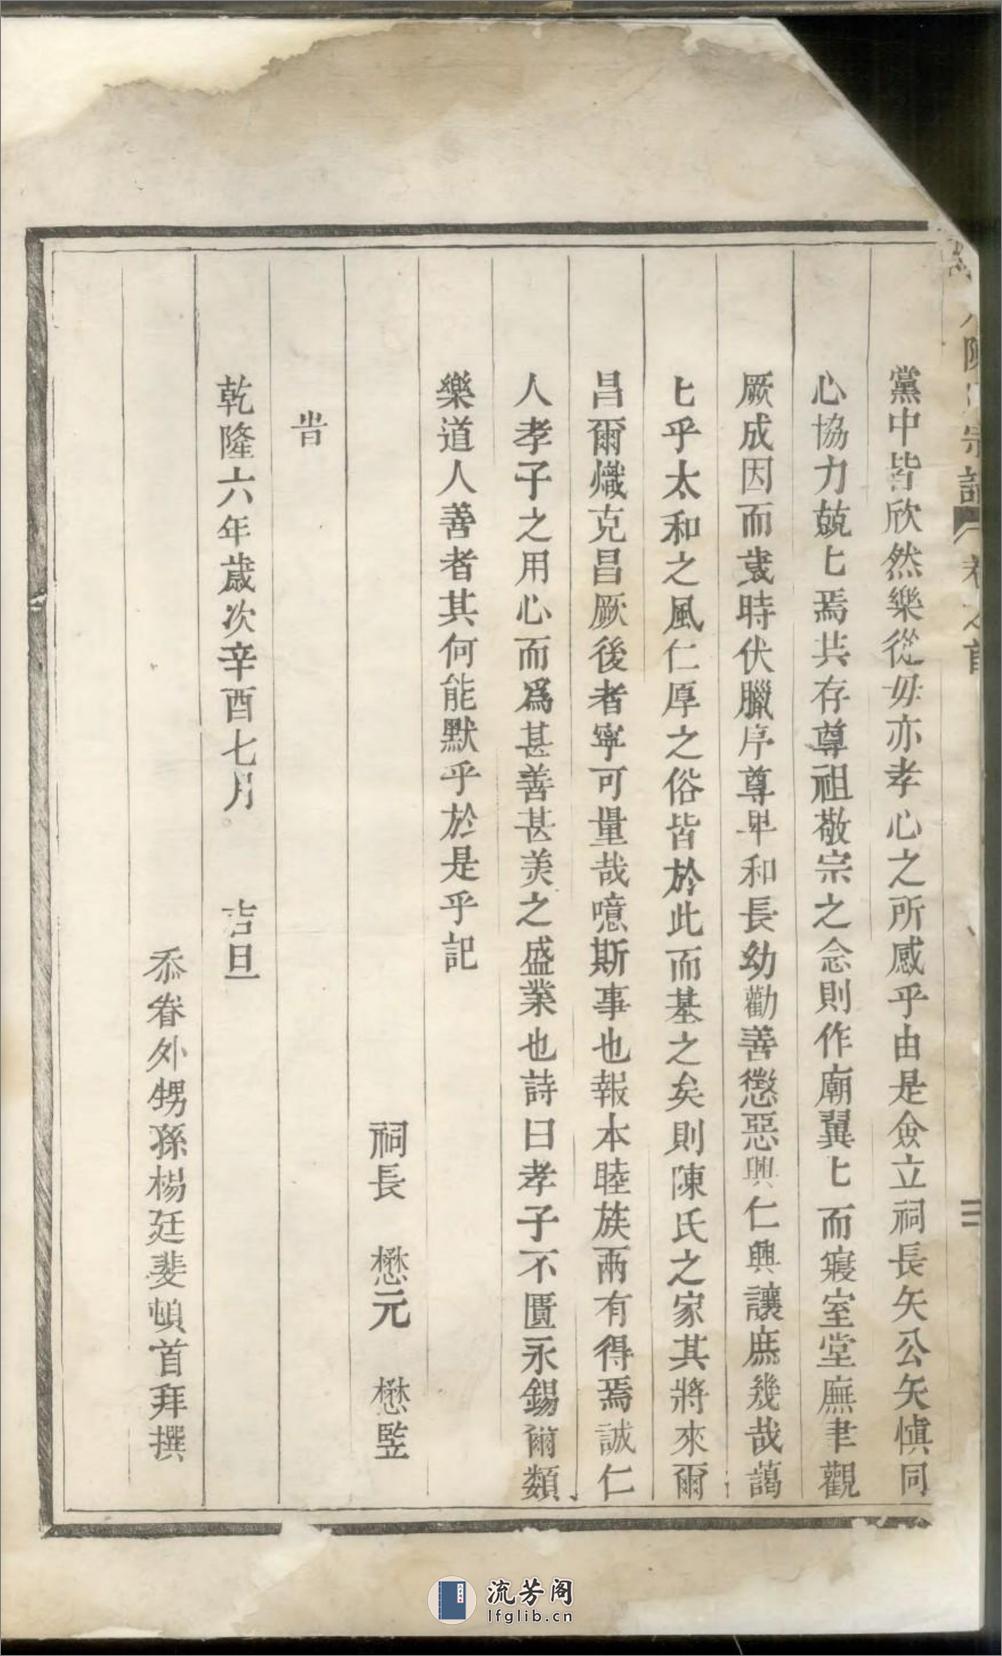 陳氏宗譜 卷之首 三
黨中皆欣然樂從毋亦孝心之所感乎由是僉立祠長矢公矢慎同
心協力兢匕焉共存尊祖敬宗之念則作廟翼匕而寢室堂廡聿觀
厥成因而歲時伏臘序尊卑和長幼勸善懲惡興仁興讓庶幾哉藹
匕乎太和之風仁厚之俗皆於此而基之矣則陳氏之家其將來爾
昌爾熾克昌厥後者寧可量哉噫斯事也報本睦族兩有得焉誠仁
人孝子之用心而爲甚善甚美之盛業也詩曰孝子不匱永錫爾類
樂道人善者其何能默乎於是乎記
祠長 懋元 懋監
旹
乾隆六年歲次辛酉七月。 吉旦
忝眷外甥孫楊廷斐頓首拜撰
流芳阁
lfglib.cn